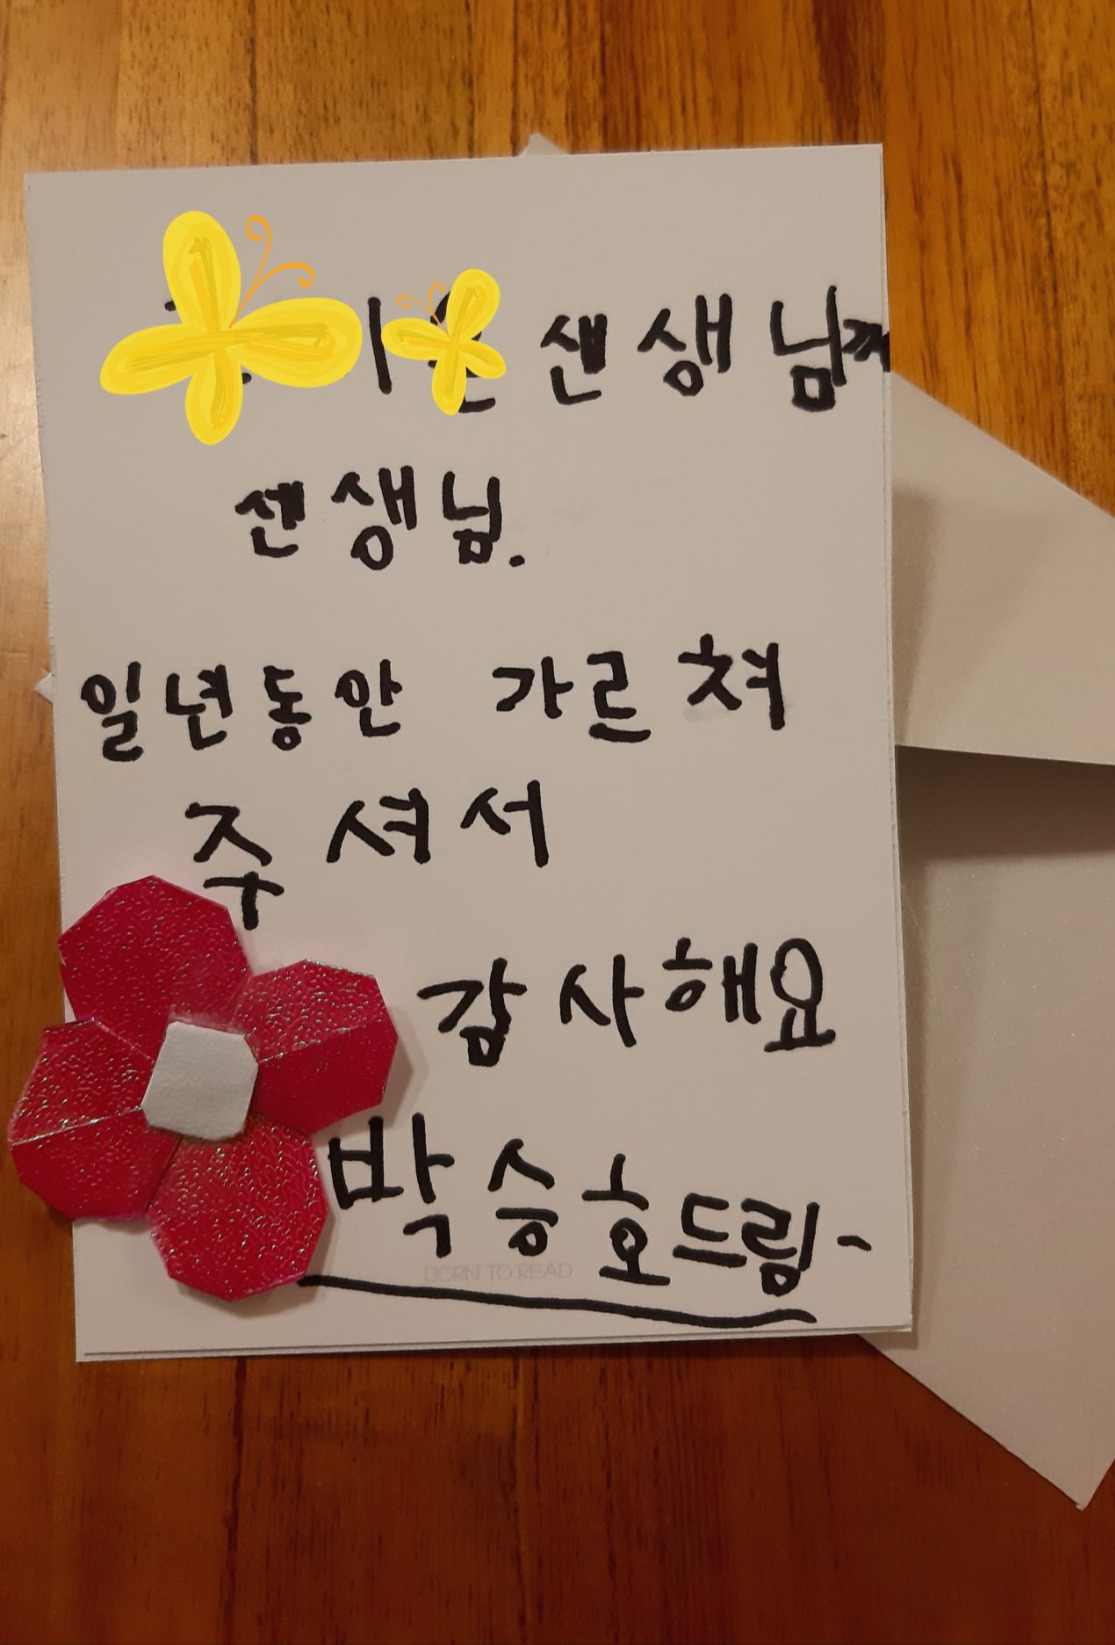 센생님께
센생님.
일년동안 가르쳐
주셔서
감사해요
박승호드림-
BORN TO READ